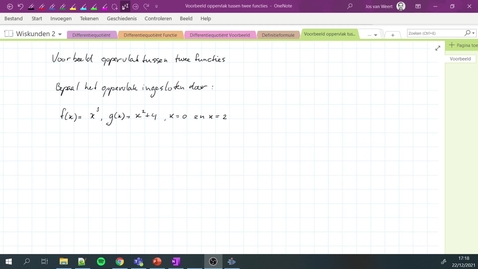 Voorbeeld oppervlak tussen twee functies - OneNote
Jos van Weert
Bestand Start Invoegen Tekenen Geschiedenis Controleren Beeld Help
Wiskunden 2
Differentiequotient
Differentiequotient Functie
Differentiequotient Voorbeeld
Definitieformule
Voorbeeld oppervlak tus...
Zoeken (Ctrl+E)
Pagina toe
Voorbeeld
Voorbeeld oppervlak tussen twee functies
Bepaal het oppervlak ingesloten door :
f(x) = x³, g(x) = x² + 4 , x = 0 en x = 2
17:18
22/12/2021